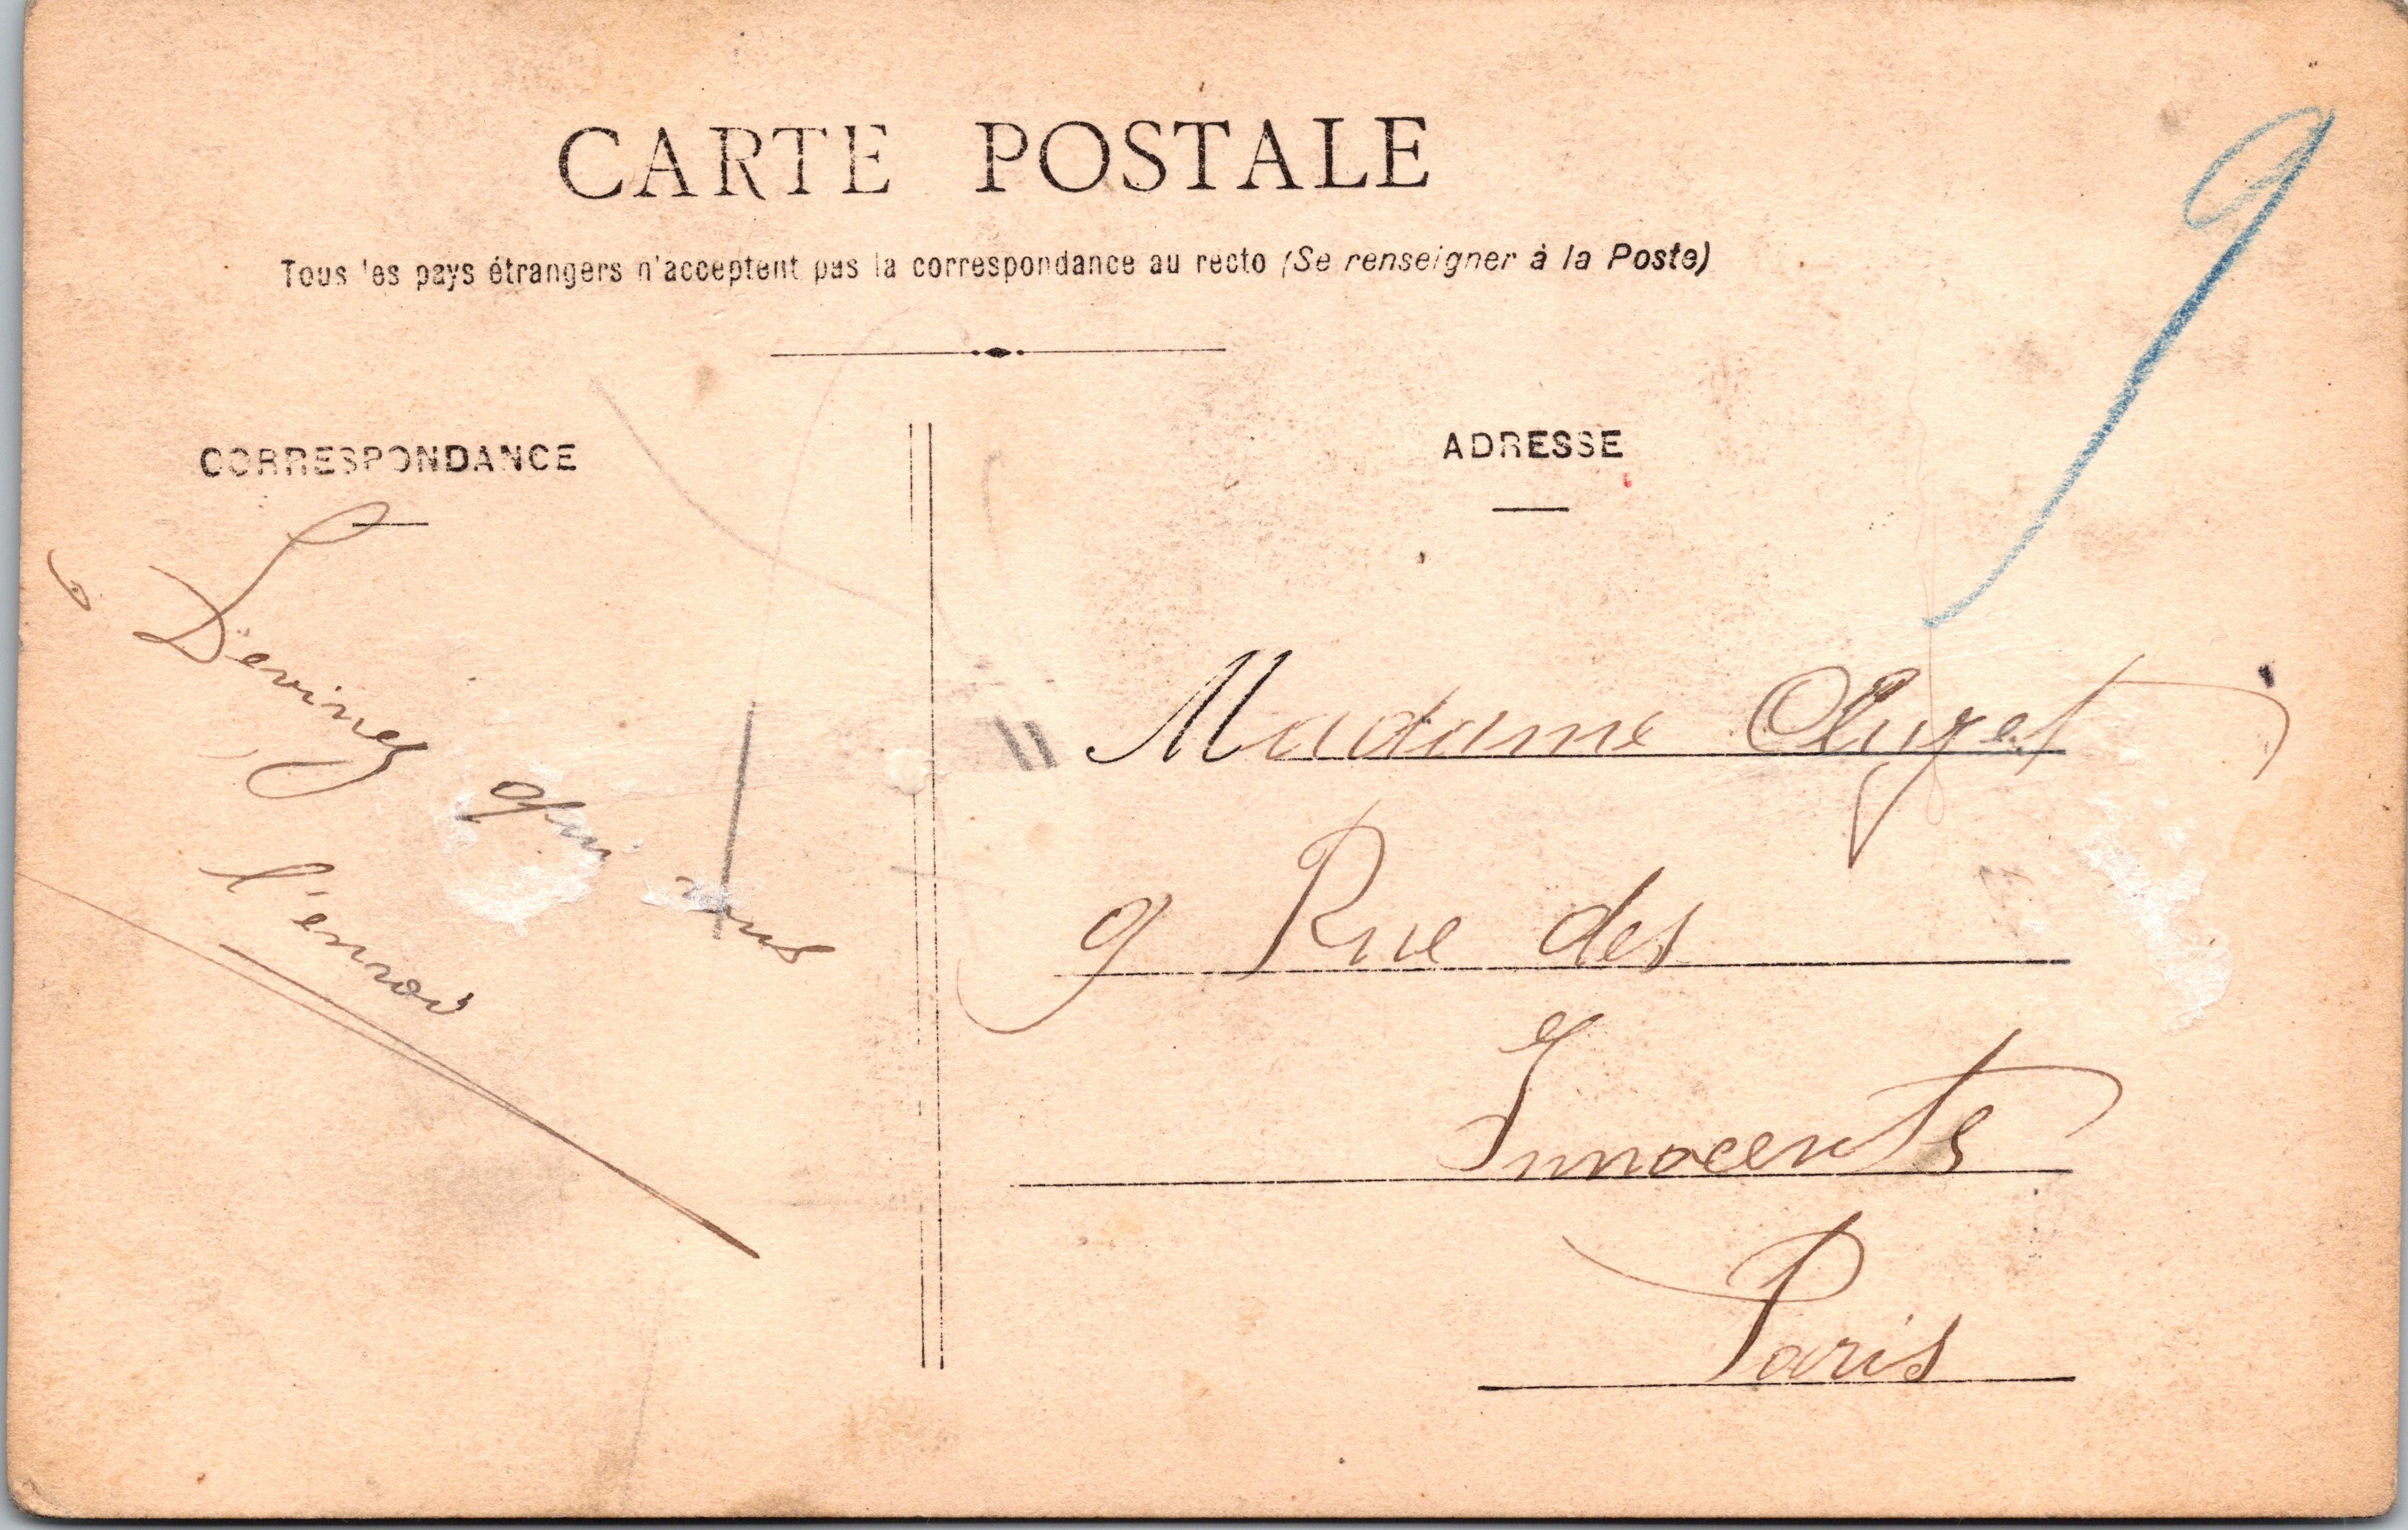 CARTE POSTALE
Tous les pays étrangers n'acceptent pas la correspondance au recto (Se renseigner à la Poste)
CORRESPONDANCE
Devinez qui vous
l'envoi
ADRESSE
Madame
9 Rue des
Innocents
Paris
9